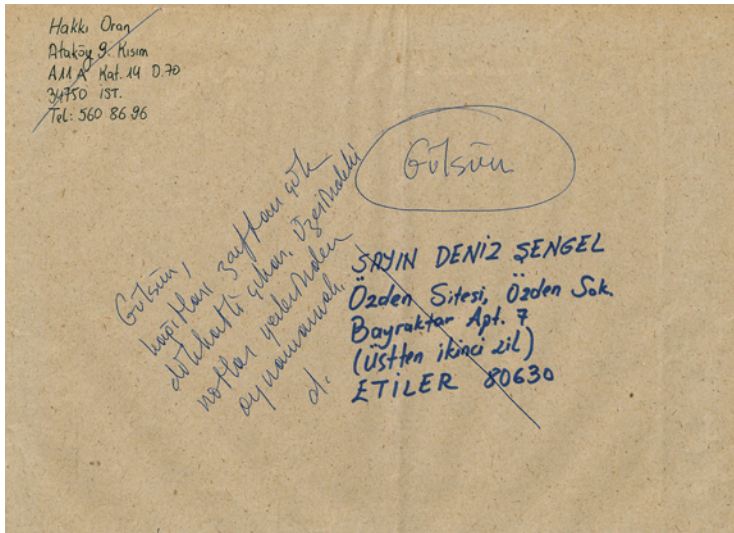 Hakkı Oran
Ataköy 9. Kısım
A11 A Kat. 14 D.70
34750 İST.
Tel: 560 86 96
Gülsün
Gülsün,
kağıtları zarftan çok
dikkatli çıkar. Üzerindeki
notlar yerlerinden
oynamamalı.
d.
SAYIN DENİZ ŞENGEL
Özden Sitesi, Özden Sok.
Bayraktar Apt. 7
(üstten ikinci zil)
ETİLER 80630